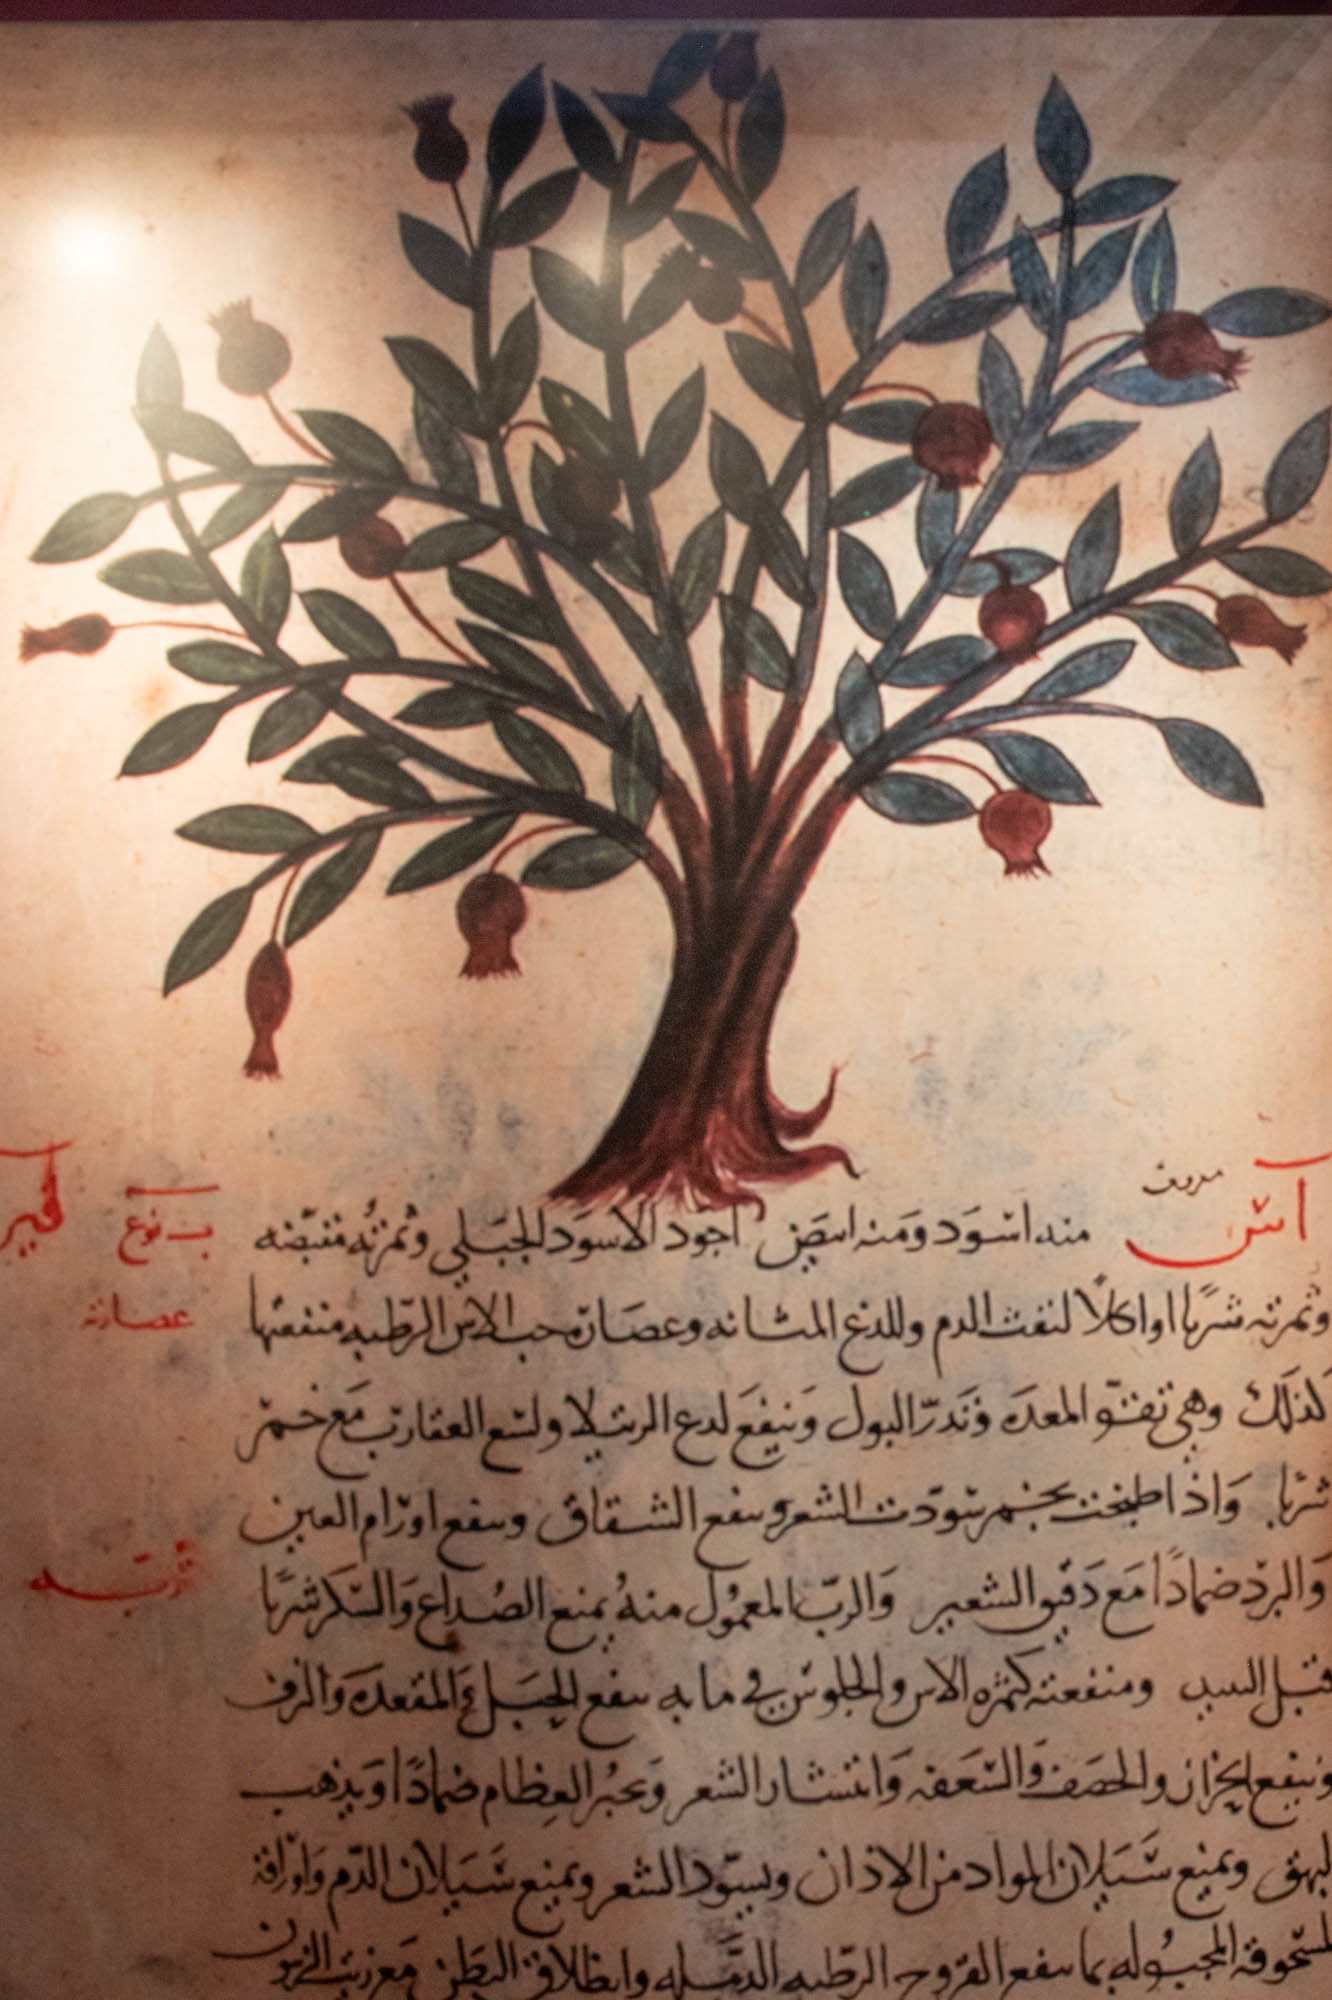 آس معروف منه اسود ومنه ابيض اجود الاسود الجبلي وثمرته مقبضه
ب نوع
وثمرته شربا او اكلا لنفث الدم وللدغ المثانه وعصارة حب الاس الرطبه منفعتها
عصارته
كذلك وهي تقو المعده وتدر البول وينفع لدغ الرتيلا ولسع العقارب مع خمر
شربا واذا طبخت بخمر سودت الشعر وينفع الشقاق وينفع اورام العين
والبرد ضمادا مع دقيق الشعير والرب المعمول منه يمنع الصداع والسكر شربا
قبل النبيذ ومنفعته كثمره الاس والجلوس في مابه ينفع المقعده
وينفع والحصف والسعفه وانتشار الشعر ويجبر العظام ضمادا ويذهب
البهق ويمنع سيلان المواد من الاذان ويسود الشعر ويمنع سيلان الدم واوراقه
المسحوقه المجبوله بما ينفع القروح الرطبه وانطلاق البطن مع زيت الزيتون